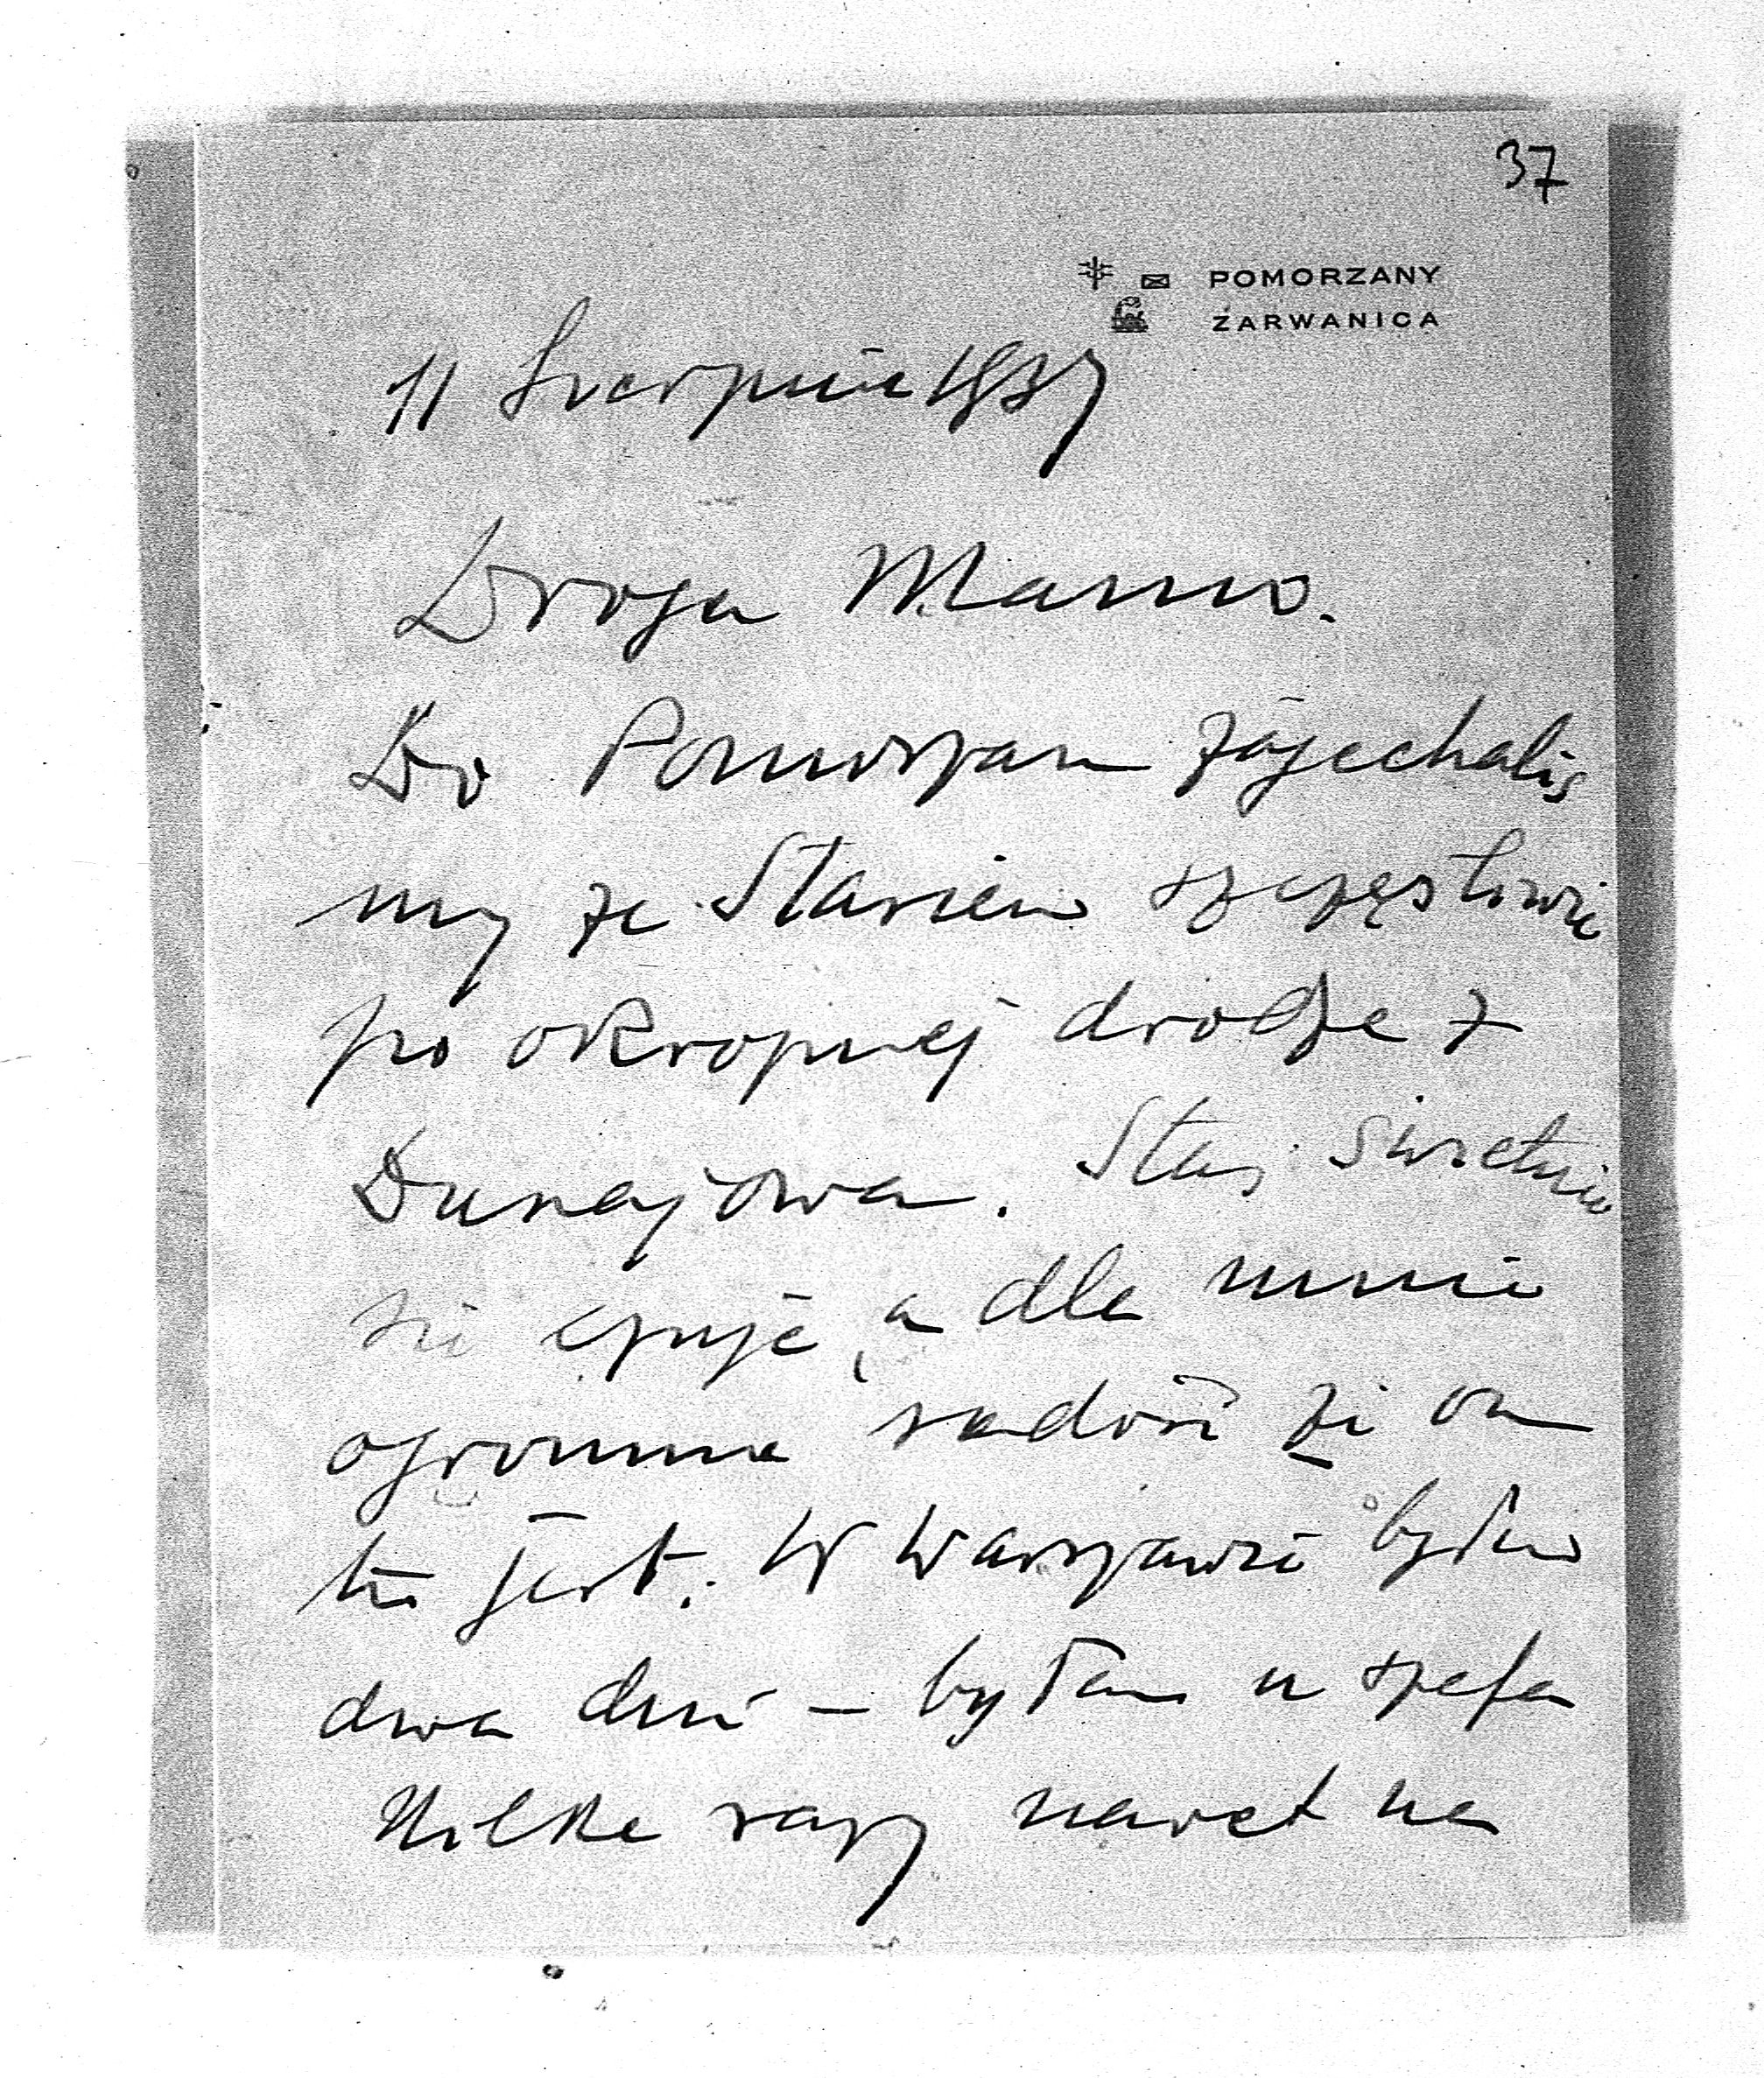 37
POMORZANY
ZARWANICA
11 Sierpnia 1937
Droga Mamo.
Do Pomorzan zajechaliś
my ze Stasiem szczęśliwie
po okropnej drodze z
Dunajowa. Staś świetnie
się czuje, a dla mnie
ogromna radość że on
tu jest. W Warszawie byłem
dwa dni – byłam u szefa
kilka razy nawet na